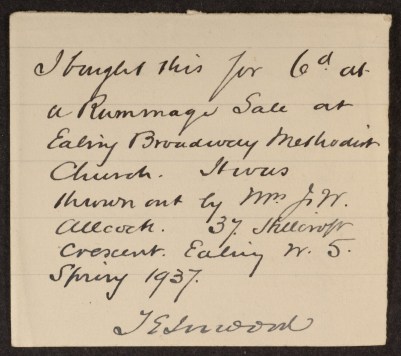 I bought this for 6d at
a Rummage Sale at
Ealing Broadway Methodist
Church. It was
thrown out by Mrs J. W.
Allcock. 37 Hillcroft
Crescent. Ealing W. 5.
Spring 1937.
T E Inwood